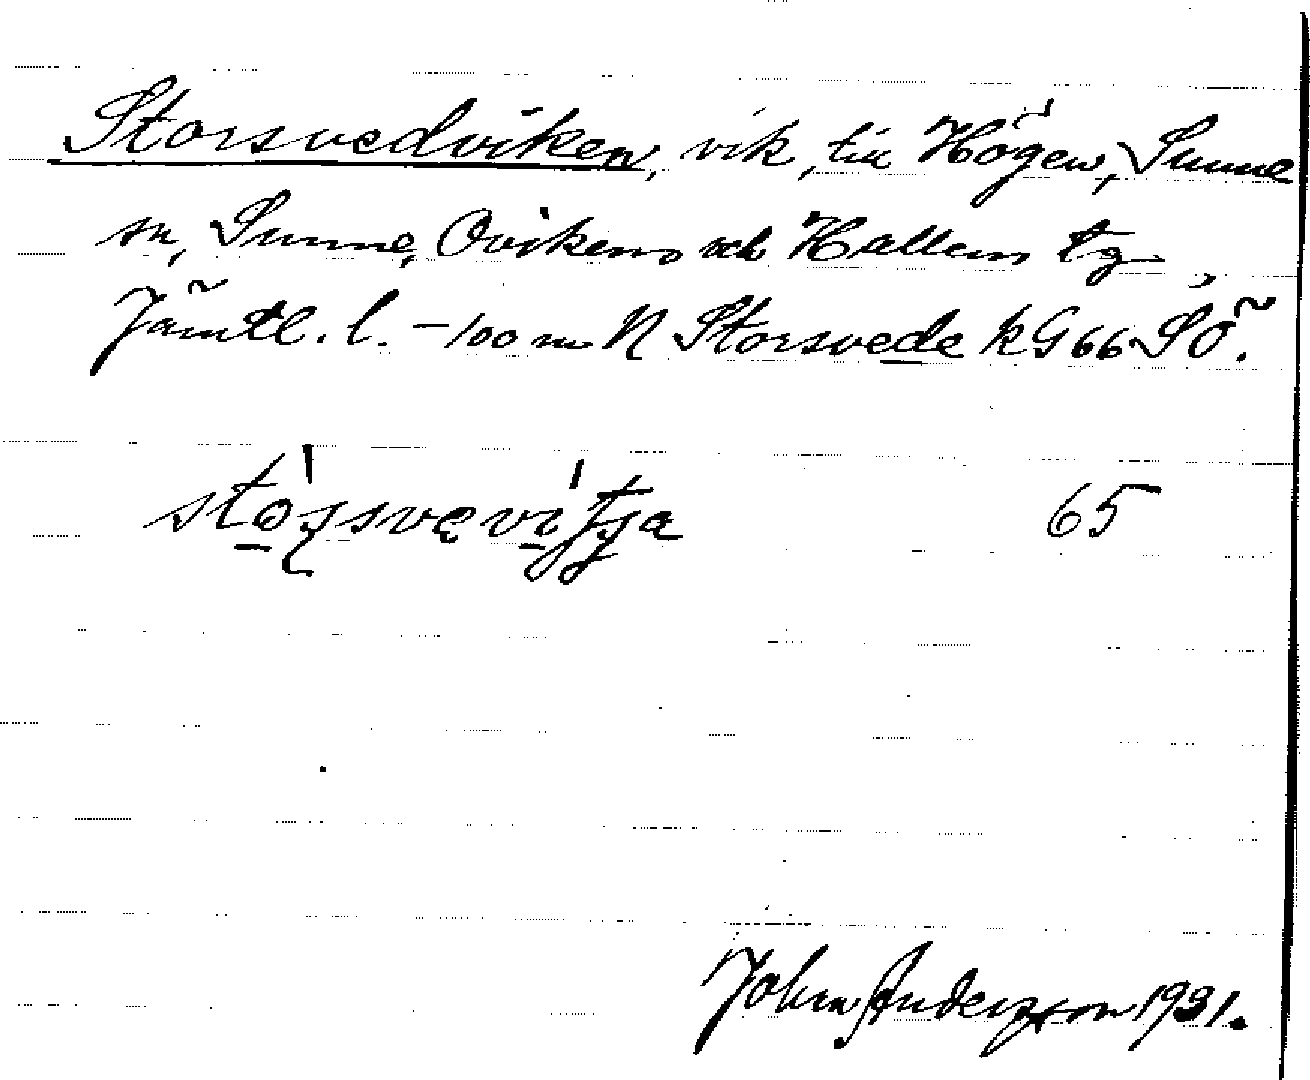 Storsvedviken, vik, till Högen, Sunne
sn, Sunne, Ovikens och Hallens tg,
Jämtl. l. – 100 m N Storsvede k G 66 SÖ.
65
John Anderzson 1931.